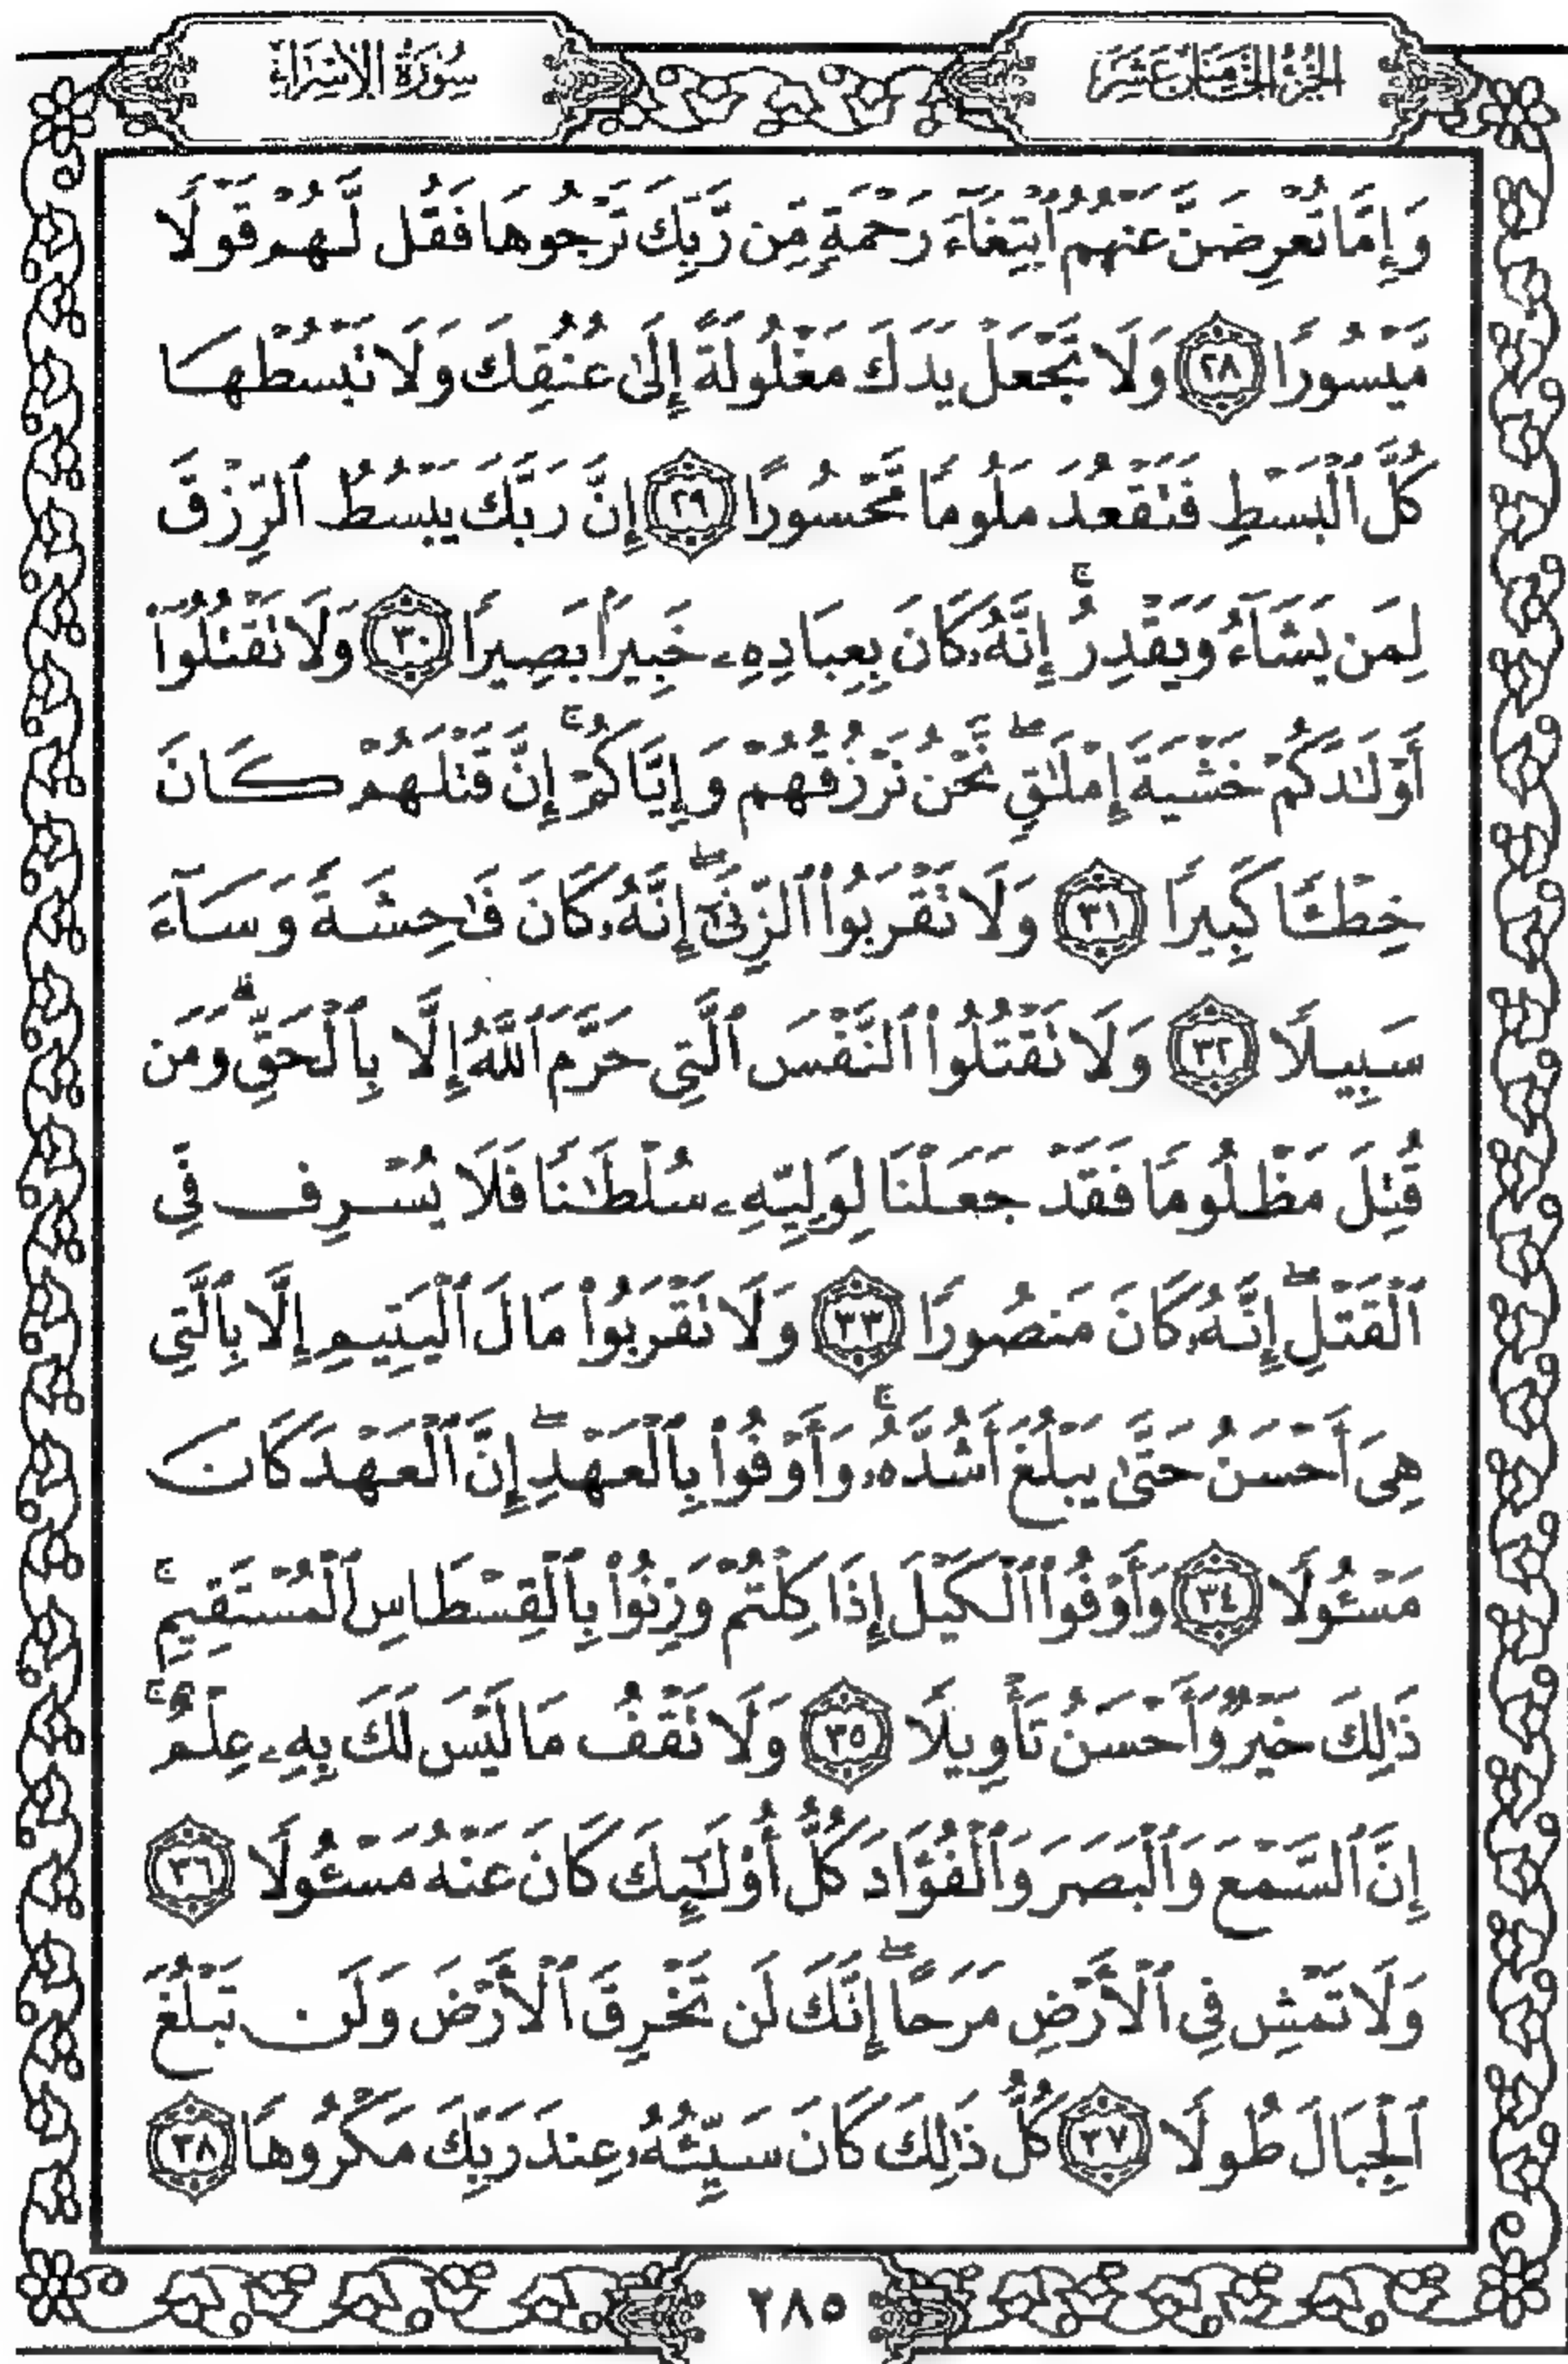 الجزء الخامس عشر
سورة الإسراء
وَإِمَّا تُعْرِضَنَّ عَنْهُمُ ٱبْتِغَآءَ رَحْمَةٍ مِّن رَّبِّكَ تَرْجُوهَا فَقُل لَّهُمْ قَوْلًا
مَّيْسُورًا ٢٨ وَلَا تَجْعَلْ يَدَكَ مَغْلُولَةً إِلَىٰ عُنُقِكَ وَلَا تَبْسُطْهَا
كُلَّ ٱلْبَسْطِ فَتَقْعُدَ مَلُومًا مَّحْسُورًا ٢٩ إِنَّ رَبَّكَ يَبْسُطُ ٱلرِّزْقَ
لِمَن يَشَآءُ وَيَقْدِرُ ۚ إِنَّهُۥ كَانَ بِعِبَادِهِۦ خَبِيرًۢا بَصِيرًا ٣٠ وَلَا تَقْتُلُوٓا۟
أَوْلَـٰدَكُمْ خَشْيَةَ إِمْلَـٰقٍ ۖ نَّحْنُ نَرْزُقُهُمْ وَإِيَّاكُمْ ۚ إِنَّ قَتْلَهُمْ كَانَ
خِطْـًٔا كَبِيرًا ٣١ وَلَا تَقْرَبُوا۟ ٱلزِّنَىٰٓ ۖ إِنَّهُۥ كَانَ فَـٰحِشَةً وَسَآءَ
سَبِيلًا ٣٢ وَلَا تَقْتُلُوا۟ ٱلنَّفْسَ ٱلَّتِى حَرَّمَ ٱللَّهُ إِلَّا بِٱلْحَقِّ ۗ وَمَن
قُتِلَ مَظْلُومًا فَقَدْ جَعَلْنَا لِوَلِيِّهِۦ سُلْطَـٰنًا فَلَا يُسْرِف فِّى
ٱلْقَتْلِ ۖ إِنَّهُۥ كَانَ مَنصُورًا ٣٣ وَلَا تَقْرَبُوا۟ مَالَ ٱلْيَتِيمِ إِلَّا بِٱلَّتِى
هِىَ أَحْسَنُ حَتَّىٰ يَبْلُغَ أَشُدَّهُۥ ۚ وَأَوْفُوا۟ بِٱلْعَهْدِ ۖ إِنَّ ٱلْعَهْدَ كَانَ
مَسْـُٔولًا ٣٤ وَأَوْفُوا۟ ٱلْكَيْلَ إِذَا كِلْتُمْ وَزِنُوا۟ بِٱلْقِسْطَاسِ ٱلْمُسْتَقِيمِ ۚ
ذَٰلِكَ خَيْرٌ وَأَحْسَنُ تَأْوِيلًا ٣٥ وَلَا تَقْفُ مَا لَيْسَ لَكَ بِهِۦ عِلْمٌ ۚ
إِنَّ ٱلسَّمْعَ وَٱلْبَصَرَ وَٱلْفُؤَادَ كُلُّ أُو۟لَـٰٓئِكَ كَانَ عَنْهُ مَسْـُٔولًا ٣٦
وَلَا تَمْشِ فِى ٱلْأَرْضِ مَرَحًا ۖ إِنَّكَ لَن تَخْرِقَ ٱلْأَرْضَ وَلَن تَبْلُغَ
ٱلْجِبَالَ طُولًا ٣٧ كُلُّ ذَٰلِكَ كَانَ سَيِّئُهُۥ عِندَ رَبِّكَ مَكْرُوهًا ٣٨
٢٨٥